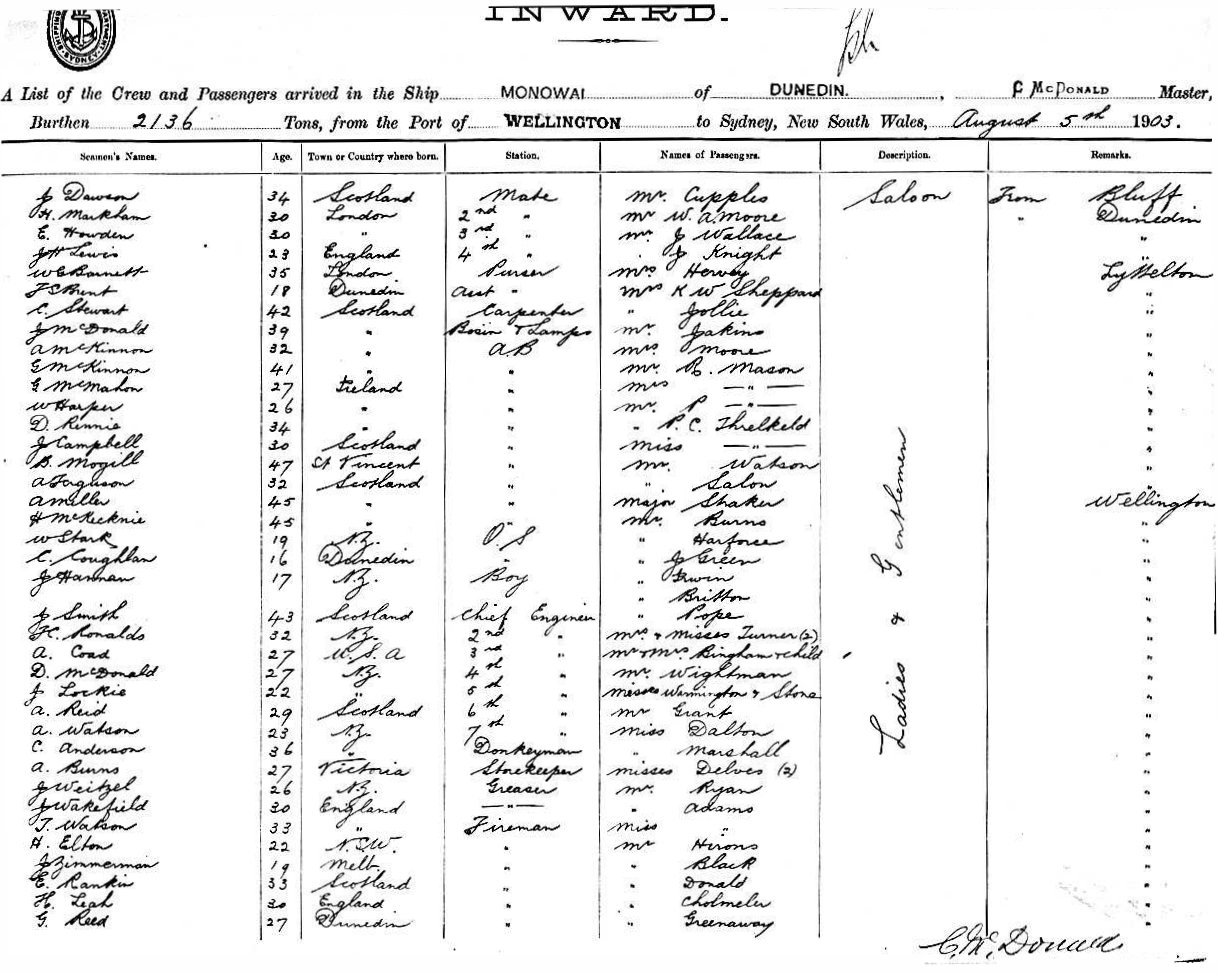 INWARD.
SYDNEY
A List of the Crew and Passengers arrived in the Ship MONOWAI of DUNEDIN. , C McDONALD Master,
Burthen 2136 Tons, from the Port of WELLINGTON to Sydney, New South Wales, August 5th 1903.
Seamen's Names. Age. Town or Country where born. Station. Names of Passengers. Description. Remarks.
J Dawson 34 Scotland Mate Mr. Cupples Saloon From Bluff
H. Markham 30 London 2nd " Mr W. A Moore " Dunedin
E. Howden 30 " 3rd " Mr. J Wallace "
J H Lewis 23 England 4th " " J Knight "
W E Barnett 35 London Purser Mrs Hervey Lyttelton
F S Brent 18 Dunedin Asst " Mrs K W Sheppard "
C. Stewart 42 Scotland Carpenter " Jollie "
J McDonald 39 " Bosin & Lamps Mr. Jakins "
A McKinnon 32 " A.B Mrs Moore "
G McKinnon 41 " " Mr. R. Mason "
G McMahon 27 Ireland " Mrs —"— "
W Harper 26 " " Mr. P —"— "
D. Rennie 34 " " " P. C. Threlkeld "
J Campbell 30 Scotland " Miss —"— "
B. Mogill 47 St Vincent " Mr. Watson "
A Ferguson 32 Scotland " " Salon "
A Miller 45 " " Major Shaker Wellington
H McKecknie 45 " " Mr. Burns "
W Stark 19 N.Z. O.S " Harforce "
C. Coughlan 16 Dunedin " " J Green "
J Hannan 17 N.Z. Boy " Irwin "
" Britton "
J Smith 43 Scotland Chief Engineer " Pope "
H. Ronalds 32 N.Z. 2nd " Mrs & Misses Turner (2) "
A. Coad 27 U.S.A 3rd " Mr & Mrs Bingham & Child "
D. McDonald 27 N.Z. 4th " Mr. Wightman "
J Lockie 22 " 5th " Misses Warmington & Stone "
A. Reid 29 Scotland 6th " Mr Grant "
A. Watson 23 N.Z. 7th " Miss Dalton "
C. Anderson 36 " Donkeyman " Marshall "
A. Burns 27 Victoria Storekeeper Misses Delves (2) "
J Weitzel 26 N.Z. Greaser Mr. Ryan "
J Wakefield 30 England —"— " Adams "
T. Watson 33 " Fireman Miss " "
H. Elton 22 N.S.W. " Mr Hirons "
J Zimmerman 19 Melb. " " Black "
E. Rankin 33 Scotland " " Donald "
H. Leah 30 England " " Cholmeler "
G. Reed 27 Dunedin " " Greenaway "
Ladies & Gentlemen
C. McDonald